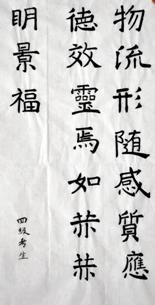 物流形隨感質應
徳效靈焉如恭恭
明景福
四級考生